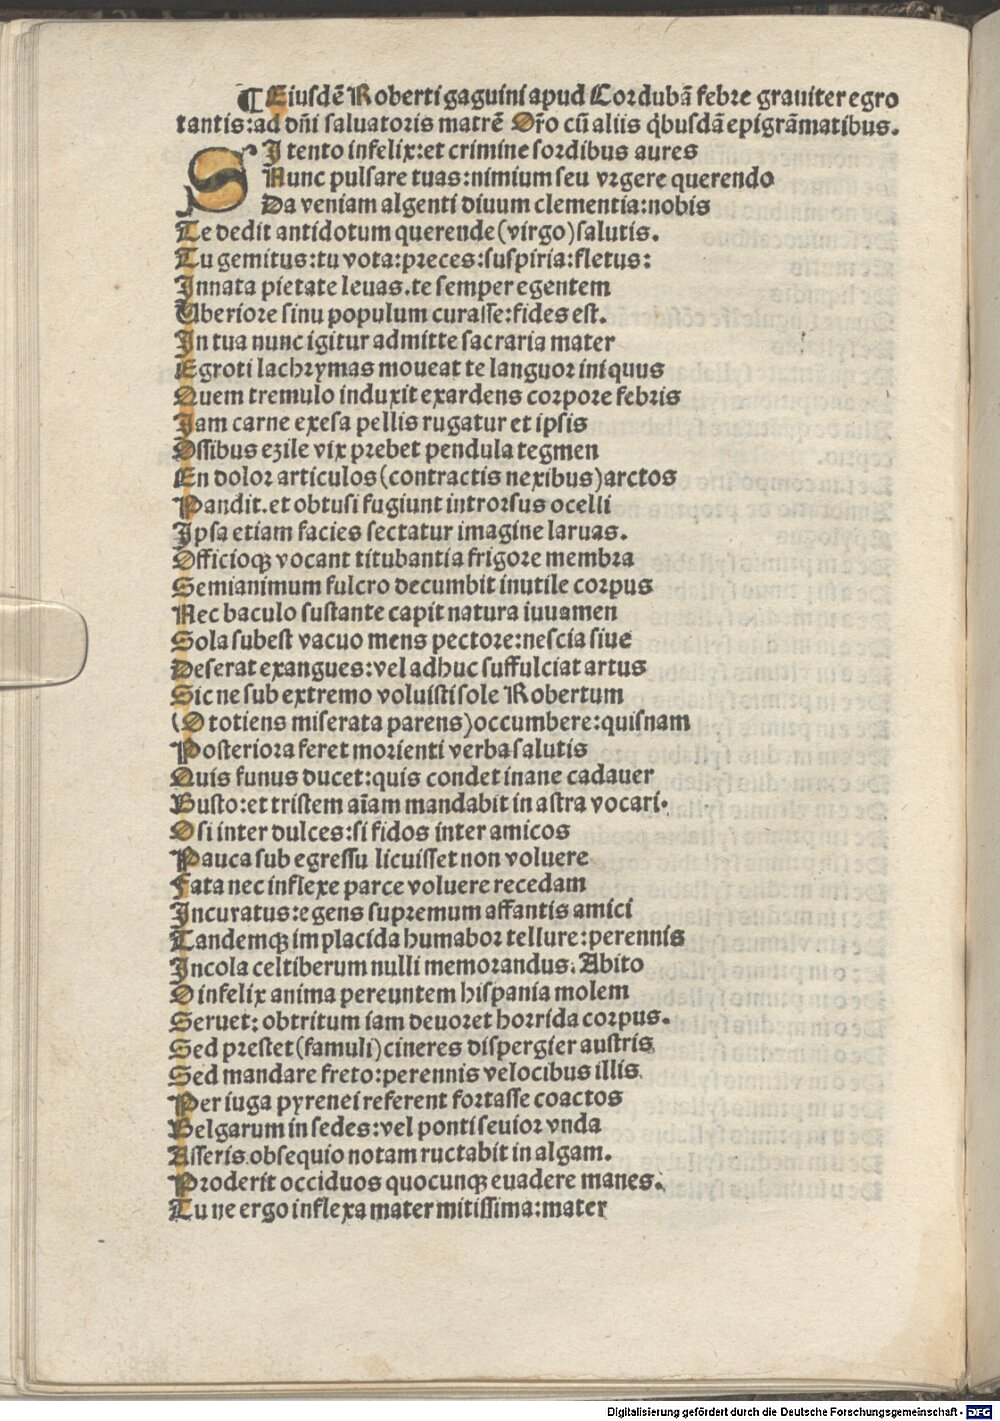 ¶ Eiusdē Roberti gaguini apud Cordubā febre grauiter egro
tantis:ad dn̄i saluatoris matrē Or̄o cū aliis q̇busdā epigrāmatibus.
SI tento infelix:et crimine sordibus aures
Nunc pulsare tuas:nimium seu vrgere querendo
Da veniam algenti diuum clementia:nobis
Te dedit antidotum querende(virgo)salutis.
Tu gemitus:tu vota:preces:suspiria:fletus:
Innata pietate leuas.te semper egentem
Uberiore sinu populum curasse:fides est.
In tua nunc igitur admitte sacraria mater
Egroti lachrymas moueat te languor iniquus
Quem tremulo induxit exardens corpore febris
Iam carne exesa pellis rugatur et ipsis
Ossibus exile vix prebet pendula tegmen
En dolor articulos(contractis nexibus)arctos
Pandit.et obtusi fugiunt introrsus ocelli
Ipsa etiam facies sectatur imagine laruas.
Officioqꝫ vocant titubantia frigore membra
Semianimum fulcro decumbit inutile corpus
Nec baculo sustante capit natura iuuamen
Sola subest vacuo mens pectore:nescia siue
Deserat exangues:vel adhuc suffulciat artus
Sic ne sub extremo voluisti sole Robertum
(O totiens miserata parens)occumbere:quisnam
Posteriora feret morienti verba salutis
Quis funus ducet:quis condet inane cadauer
Busto:et tristem aīam mandabit in astra vocari.
O si inter dulces:si fidos inter amicos
Pauca sub egressu licuisset non voluere
Fata nec inflexe parce voluere recedam
Incuratus:egens supremum affantis amici
Tandemqꝫ implacida humabor tellure:perennis
Incola celtiberum nulli memorandus. Abito
O infelix anima pereuntem hispania molem
Seruet: obtritum iam deuoret horrida corpus.
Sed prestet(famuli)cineres dispergier austris
Sed mandare freto:perennis velocibus illis
Per iuga pyrenei referent fortasse coactos
Belgarum in sedes:vel ponti seuior vnda
Asseris obsequio notam ructabit in algam.
Proderit occiduos quocunqꝫ euadere manes.
Tu ne ergo inflexa mater mitissima:mater
Digitalisierung gefördert durch die Deutsche Forschungsgemeinschaft - DFG